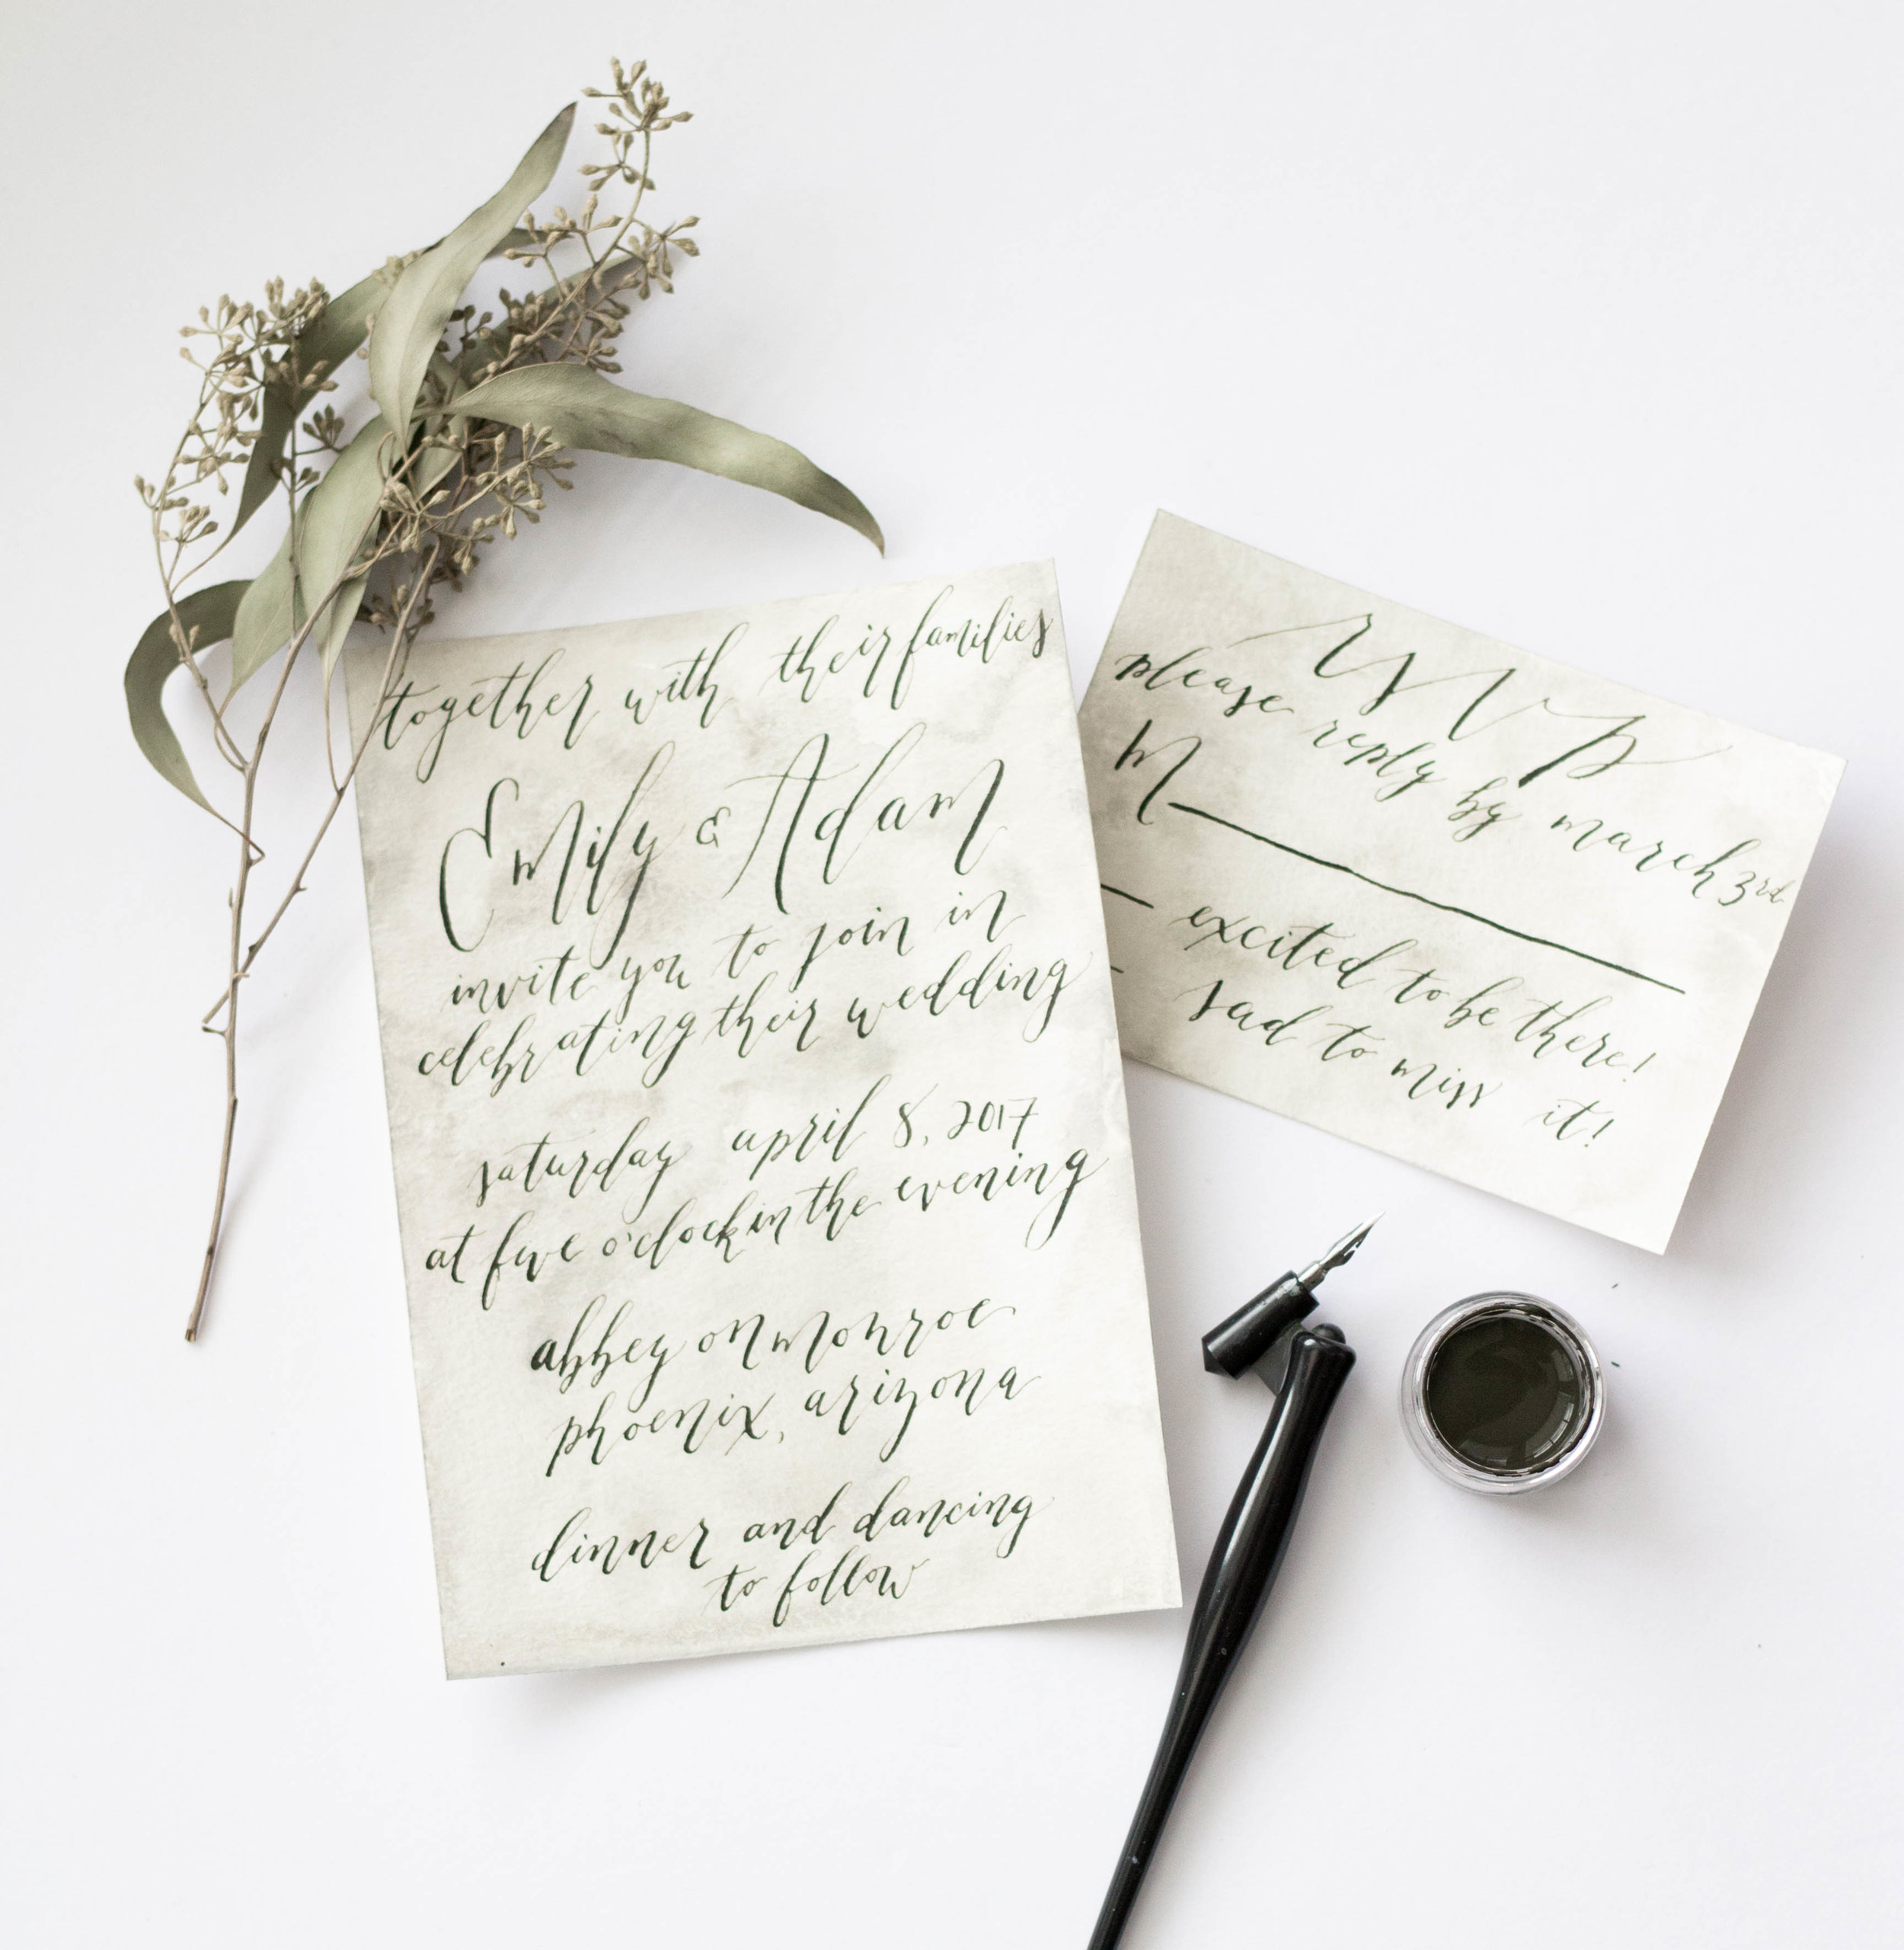 together with their families
Emily & Adam
invite you to join in
celebrating their wedding
saturday april 8, 2017
at five o'clock in the evening
abbey on monroe
phoenix, arizona
dinner and dancing
to follow
rsvp
please reply by march 3rd
M
excited to be there!
sad to miss it!